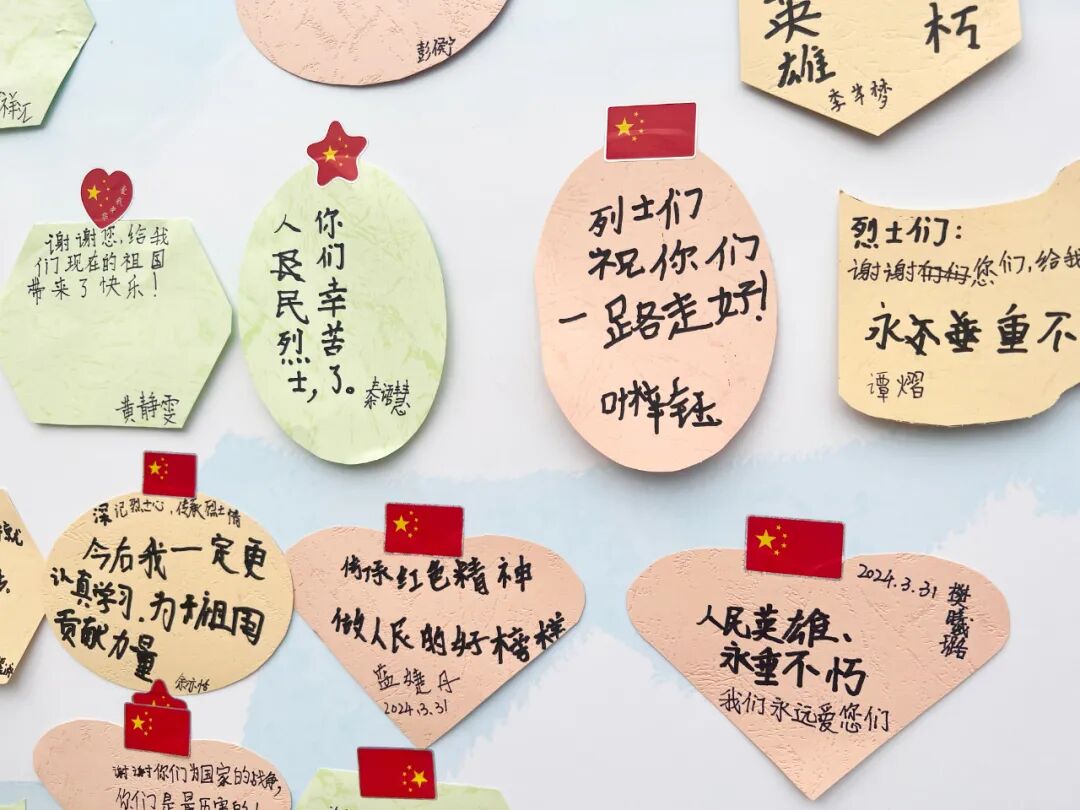 祥汇
彭侯宁
英
雄
朽
李芈梦
谢谢您,给我
们现在的祖国
带来了快乐!
黄静雯
你们辛苦了。
人民民烈士,
秦语慧
烈士们
祝你们
一路走好!
叶梓钰
烈士们:
谢谢 您们,给我
永远垂重不
谭熠
深记烈士心,传承烈士情
今后我一定更
认真学习,为祖国
贡献力量
余亦恬
传承红色精神
做人民的好榜样
蓝婕丹
2024.3.31
2024.3.31
樊
人民英雄、
永垂不朽
我们永远爱您们
谢谢你们为国家的战争,
你们是最厉害的!